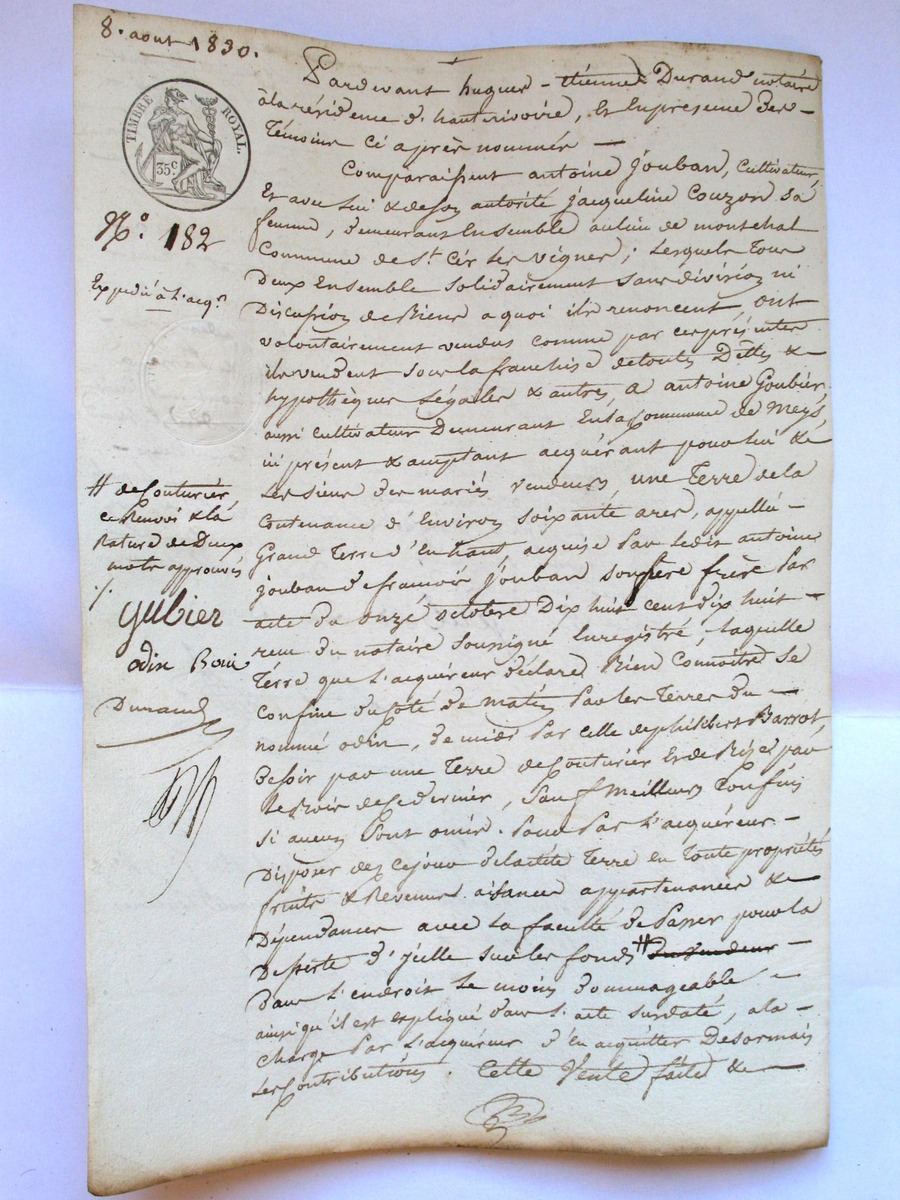 8. aout 1830.
TIMBRE ROYAL.
35 c
N.o 182
Expedié à l'acq.r
Pardevant hugues - étienne Durand notaire
à la résidence d'hauterivoire, Et En présence des -
Témoins Ci après nommés -
Comparaissent antoine Jouban, Cultivateur,
Et avec lui & de son autorité Jacqueline Couzon sa
femme, demeurant Ensemble au lieu de montchal
Commune de St. Cir Les vignes ; Lesquels Tous
Deux Ensemble Solidairement Sans division ni
Discussion de Biens a quoi ils renoncent, ont
volontairement vendus comme par ces présentes
ils vendent Sous la franchise de toutes Dettes &
hypothèques Légales & autres, a antoine Goubier
aussi cultivateur Demeurant En la Commune de Meys
ici présent & acceptant acquérant pour lui &
Les siens des mariés vendeurs, une Terre de la
Contenance d'Environ soixante ares, appellé -
Grand Terre d'En haut, acquise Par ledit antoine
Jouban de françois Jouban son frère Par
acte du onze octobre Dix huit cent dix huit -
reçu du notaire soussigné Enregistré, laquelle
Terre que l'acquéreur déclare Bien Connoitre Se
Confine du Coté de matin Par les Terres du -
nommé odin, de midi Par Celle de philibert Barrot
de Soir par une Terre de Couturier Et de Bize par
Le Bois de ce dernier, Sauf Meilleurs Confins
Si aucuns Sont omis. Pour Par L'acquéreur -
Disposer dez ce jour de la dite Terre en Toute propriétés
fruits & Revenus aisances appartenances &
Dépendances avec La faculté de Passer pour la
Deserte d'icelle sur les fonds # du vendeur -
dans l'endroit Le moins dommageable -
ainsi qu'il est expliqué dans l'acte Surdaté, a la -
Charge Par L'acquéreur d'En acquitter Desormais
Les Contributions. Cette Vente faite &
# de Couturier,
ce Renvoi & la
Rature de Deux
mots approuvés
./.
gubier
odin
Durand